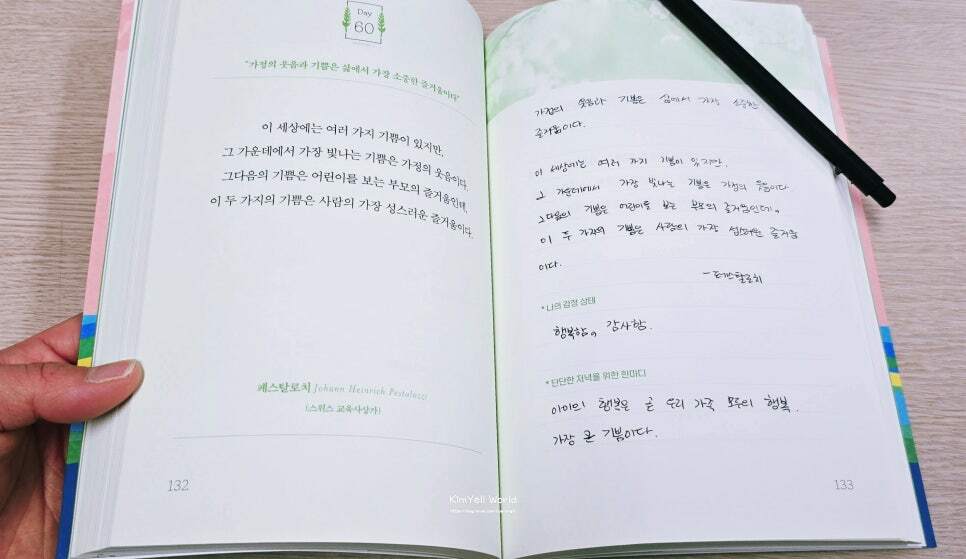 Day
60
"가정의 웃음과 기쁨은 삶에서 가장 소중한 즐거움이다"
이 세상에는 여러 가지 기쁨이 있지만,
그 가운데에서 가장 빛나는 기쁨은 가정의 웃음이다.
그다음의 기쁨은 어린이를 보는 부모의 즐거움인데,
이 두 가지의 기쁨은 사람의 가장 성스러운 즐거움이다.
페스탈로치 Johann Heinrich Pestalozzi
(스위스 교육사상가)
132
가정의 웃음과 기쁨은 삶에서 가장 소중한
즐거움이다.
이 세상에는 여러 가지 기쁨이 있지만,
그 가운데에서 가장 빛나는 기쁨은 가정의 웃음이다
그다음의 기쁨은 어린이를 보는 부모의 즐거움인데,
이 두 가지의 기쁨은 사람의 가장 성스러운 즐거움
이다.
- 페스탈로치
* 나의 감정 상태
행복함, 감사함.
* 단단한 저녁을 위한 한마디
아이의 행복은 곧 우리 가족 모두의 행복.
가장 큰 기쁨이다.
133
KimYell World